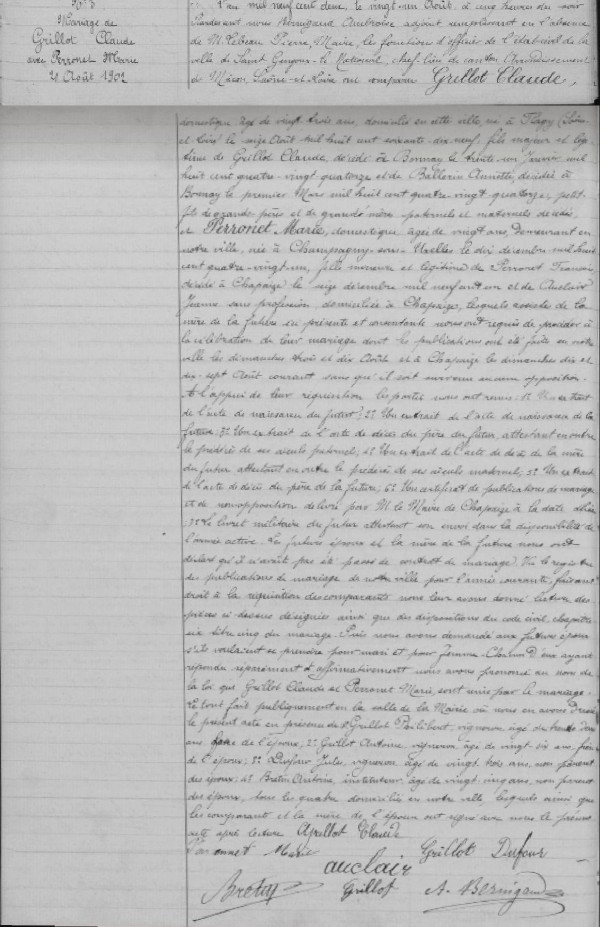 Mariage de
Grillot Claude
avec Perronet Marie
21 Août 1902
L'an mil neuf cent deux, le vingt-un Août, à cinq heures du soir
Pardevant nous Bernigaud Ambroise adjoint remplissant en l'absence
de M. Lebeau Pierre, Maire, les fonctions d'officier de l'état-civil de la
ville de Saint Gengoux-le-National, chef-lieu de canton Arrondissement
de Mâcon, Saône-et-Loire, ont comparu Grillot Claude,
domestique, âgé de vingt trois ans, domicilié en cette ville, né à Flagy (Saône-
et-Loire) le seize Août mil huit cent soixante-dix-neuf, fils majeur et légi-
time de Grillot Claude, décédé à Bonnay le trente-un Janvier mil
huit cent quatre-vingt quatorze et de Annette, décédée à
Bonnay le premier Mars mil huit cent quatre-vingt quatorze, petit-
fils de grands-pères et de grands'mères paternels et maternels décédés,
et Perronet Marie, domestique, âgée de vingt ans, demeurant en
notre ville, née à Champagny-sous-Uxelles le dix décembre mil huit
cent quatre-vingt-un, fille mineure et légitime de Perronet François,
décédé à Chapaize le seize décembre mil neuf cent un et de Auclair
Jeanne, sans profession, domiciliée à Chapaize, lesquels assistés de la
mère de la future ici présente et consentante nous ont requis de procéder à
la célébration de leur mariage dont les publications ont été faites en notre
ville les dimanches trois et dix Août et à Chapaize les dimanches dix et
dix-sept Août courant sans qu'il soit survenu aucune opposition.
A l'appui de leur réquisition les parties nous ont remis: 1° Un extrait
de l'acte de naissance du futur; 2° Un extrait de l'acte de naissance de la
future; 3° Un extrait de l'acte de décès du père du futur, attestant en outre
le prédécès de ses aïeuls paternels; 4° Un extrait de l'acte de décès de la mère
du futur attestant en outre le prédécès de ses aïeuls maternels; 5° Un extrait
de l'acte de décès du père de la future; 6° Un certificat de publications de mariage
et de non opposition délivré par M. le Maire de Chapaize à la date
7° Le livret militaire du futur attestant son envoi dans la disponibilité de
l'armée active. Les futurs époux et la mère de la future nous ont
déclaré qu'il n'avait pas été passé de contrat de mariage. Vu le registre
des publications de mariage de notre ville pour l'année courante, faisant
droit à la réquisition des comparants nous leur avons donné lecture des
pièces ci-dessus désignées ainsi que des dispositions du code civil, chapitre
six titre cinq du mariage. Puis nous avons demandé aux futurs époux
s'ils voulaient se prendre pour mari et pour femme. Chacun d'eux ayant
répondu séparément et affirmativement nous avons prononcé au nom de
la loi que Grillot Claude et Perronet Marie, sont unis par le mariage.
Le tout fait publiquement en la salle de la Mairie où nous avons dressé
le présent acte en présence de 1° Grillot Philibert, vigneron, âgé de trente deux
ans, frère de l'époux; 2° Grillot Antoine, vigneron âgé de vingt six ans, frère
de l'époux; 3° Dufour Jules, vigneron, âgé de vingt trois ans, non parent
des époux; 4° Bretin Antoine, instituteur, âgé de vingt cinq ans, non parent
des époux, tous les quatre domiciliés en notre ville, lesquels ainsi que
les comparants et la mère de l'épouse ont signé avec nous le présent
acte après lecture Grillot Claude
Perronnet Marie Grillot Dufour
auclair
Bretin Grillot A. Bernigaud